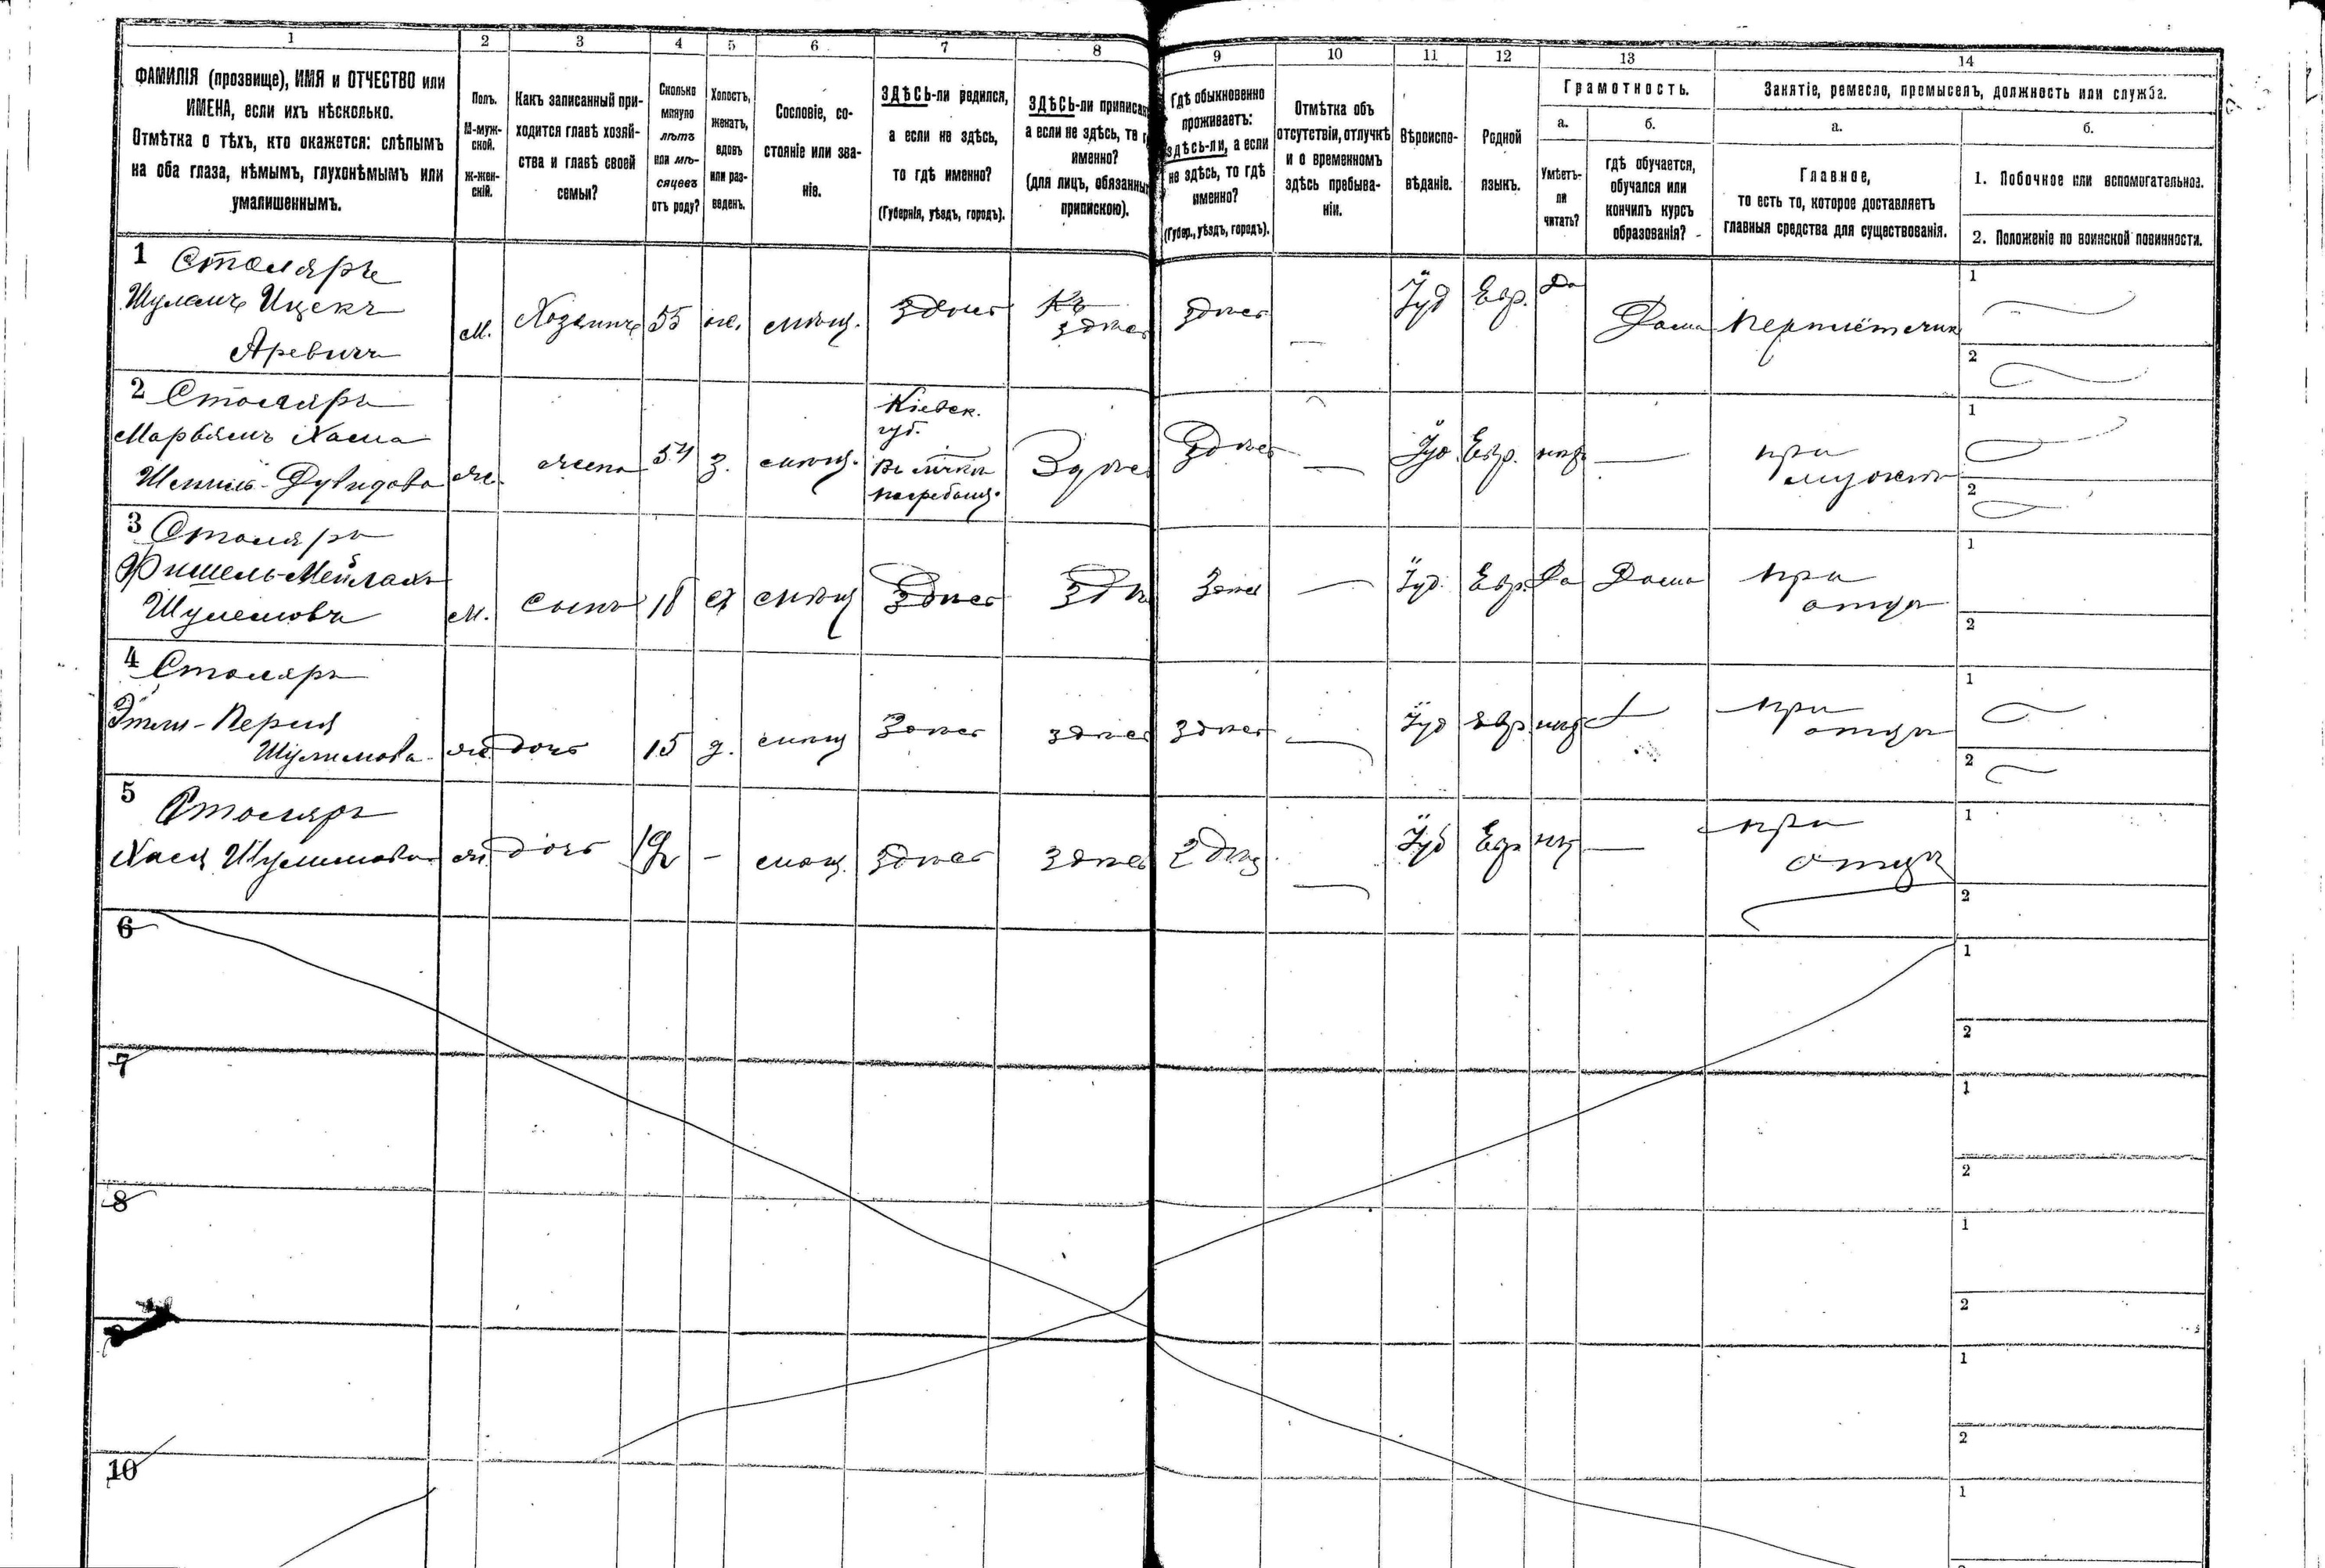 1 2 3 4 5 6 7 8 9 10 11 12 13 14
ФАМИЛІЯ (прозвище), ИМЯ и ОТЧЕСТВО или
ИМЕНА, если ихъ нѣсколько.
Отмѣтка о тѣхъ, кто окажется: слѣпымъ
на оба глаза, нѣмымъ, глухонѣмымъ или
умалишеннымъ.
Полъ.
М-муж-
ской.
Ж-жен-
скій.
Какъ записанный при-
ходится главѣ хозяй-
ства и главѣ своей
семьи?
Сколько
минуло
лѣтъ
или мѣ-
сяцевъ
отъ роду?
Холостъ,
женатъ,
вдовъ
или раз-
веденъ.
Сословіе, со-
стояніе или зва-
ніе.
ЗДѢСЬ-ли родился,
а если не здѣсь,
то гдѣ именно?
(Губернія, уѣздъ, городъ).
ЗДѢСЬ-ли приписан
а если не здѣсь, то г
именно?
(для лицъ, обязанны
припискою).
Гдѣ обыкновенно
проживаетъ:
здѣсь-ли, а если
не здѣсь, то гдѣ
именно?
(Губер., уѣздъ, городъ).
Отмѣтка объ
отсутствіи, отлучкѣ
и о временномъ
здѣсь пребыва-
ніи.
Вѣроиспо-
вѣданіе.
Родной
языкъ.
Грамотность.
а.
Умѣетъ-
ли
читать?
б.
гдѣ обучается,
обучался или
кончилъ курсъ
образованія?
Занятіе, ремесло, промыселъ, должность или служба.
а.
Главное,
то есть то, которое доставляетъ
главныя средства для существованія.
б.
1. Побочное или вспомогательное.
2. Положеніе по воинской повинности.
1 Столяръ
Шулемъ Ицекъ
Аревичъ
м. Хозяинъ 55 ж. мѣщ. Здѣсь здѣсь здѣсь Іуд Евр. Да Дома
1
2
2 Столяръ
Марьямъ Хасна
Дувидова
же. жена 54 з. мѣщ.
Кіевск.
губ.
Здѣсь Здѣсь Іуд. Евр. нѣтъ
при
мужѣ
1
2
3 Столяръ
Фишель-Мейлахъ
Шулемовъ
м. сынъ 18 х мѣщ Здѣсь Здѣ Здѣсь Іуд. Евр. Да Дома
при
отцѣ
1
2
4 Столяръ
Шулимова
же. дочь 15 д. мѣщ Здѣсь здѣсь здѣсь Іуд Евр. нѣтъ
при
отцѣ
1
2
5 Столяръ
Хася Шулимова
же. дочь 12 - мѣщ. здѣсь здѣсь здѣсь Іуд Евр нѣтъ
при
отцѣ
1
2
6
1
2
7
1
2
8
1
2
9
1
2
10
1